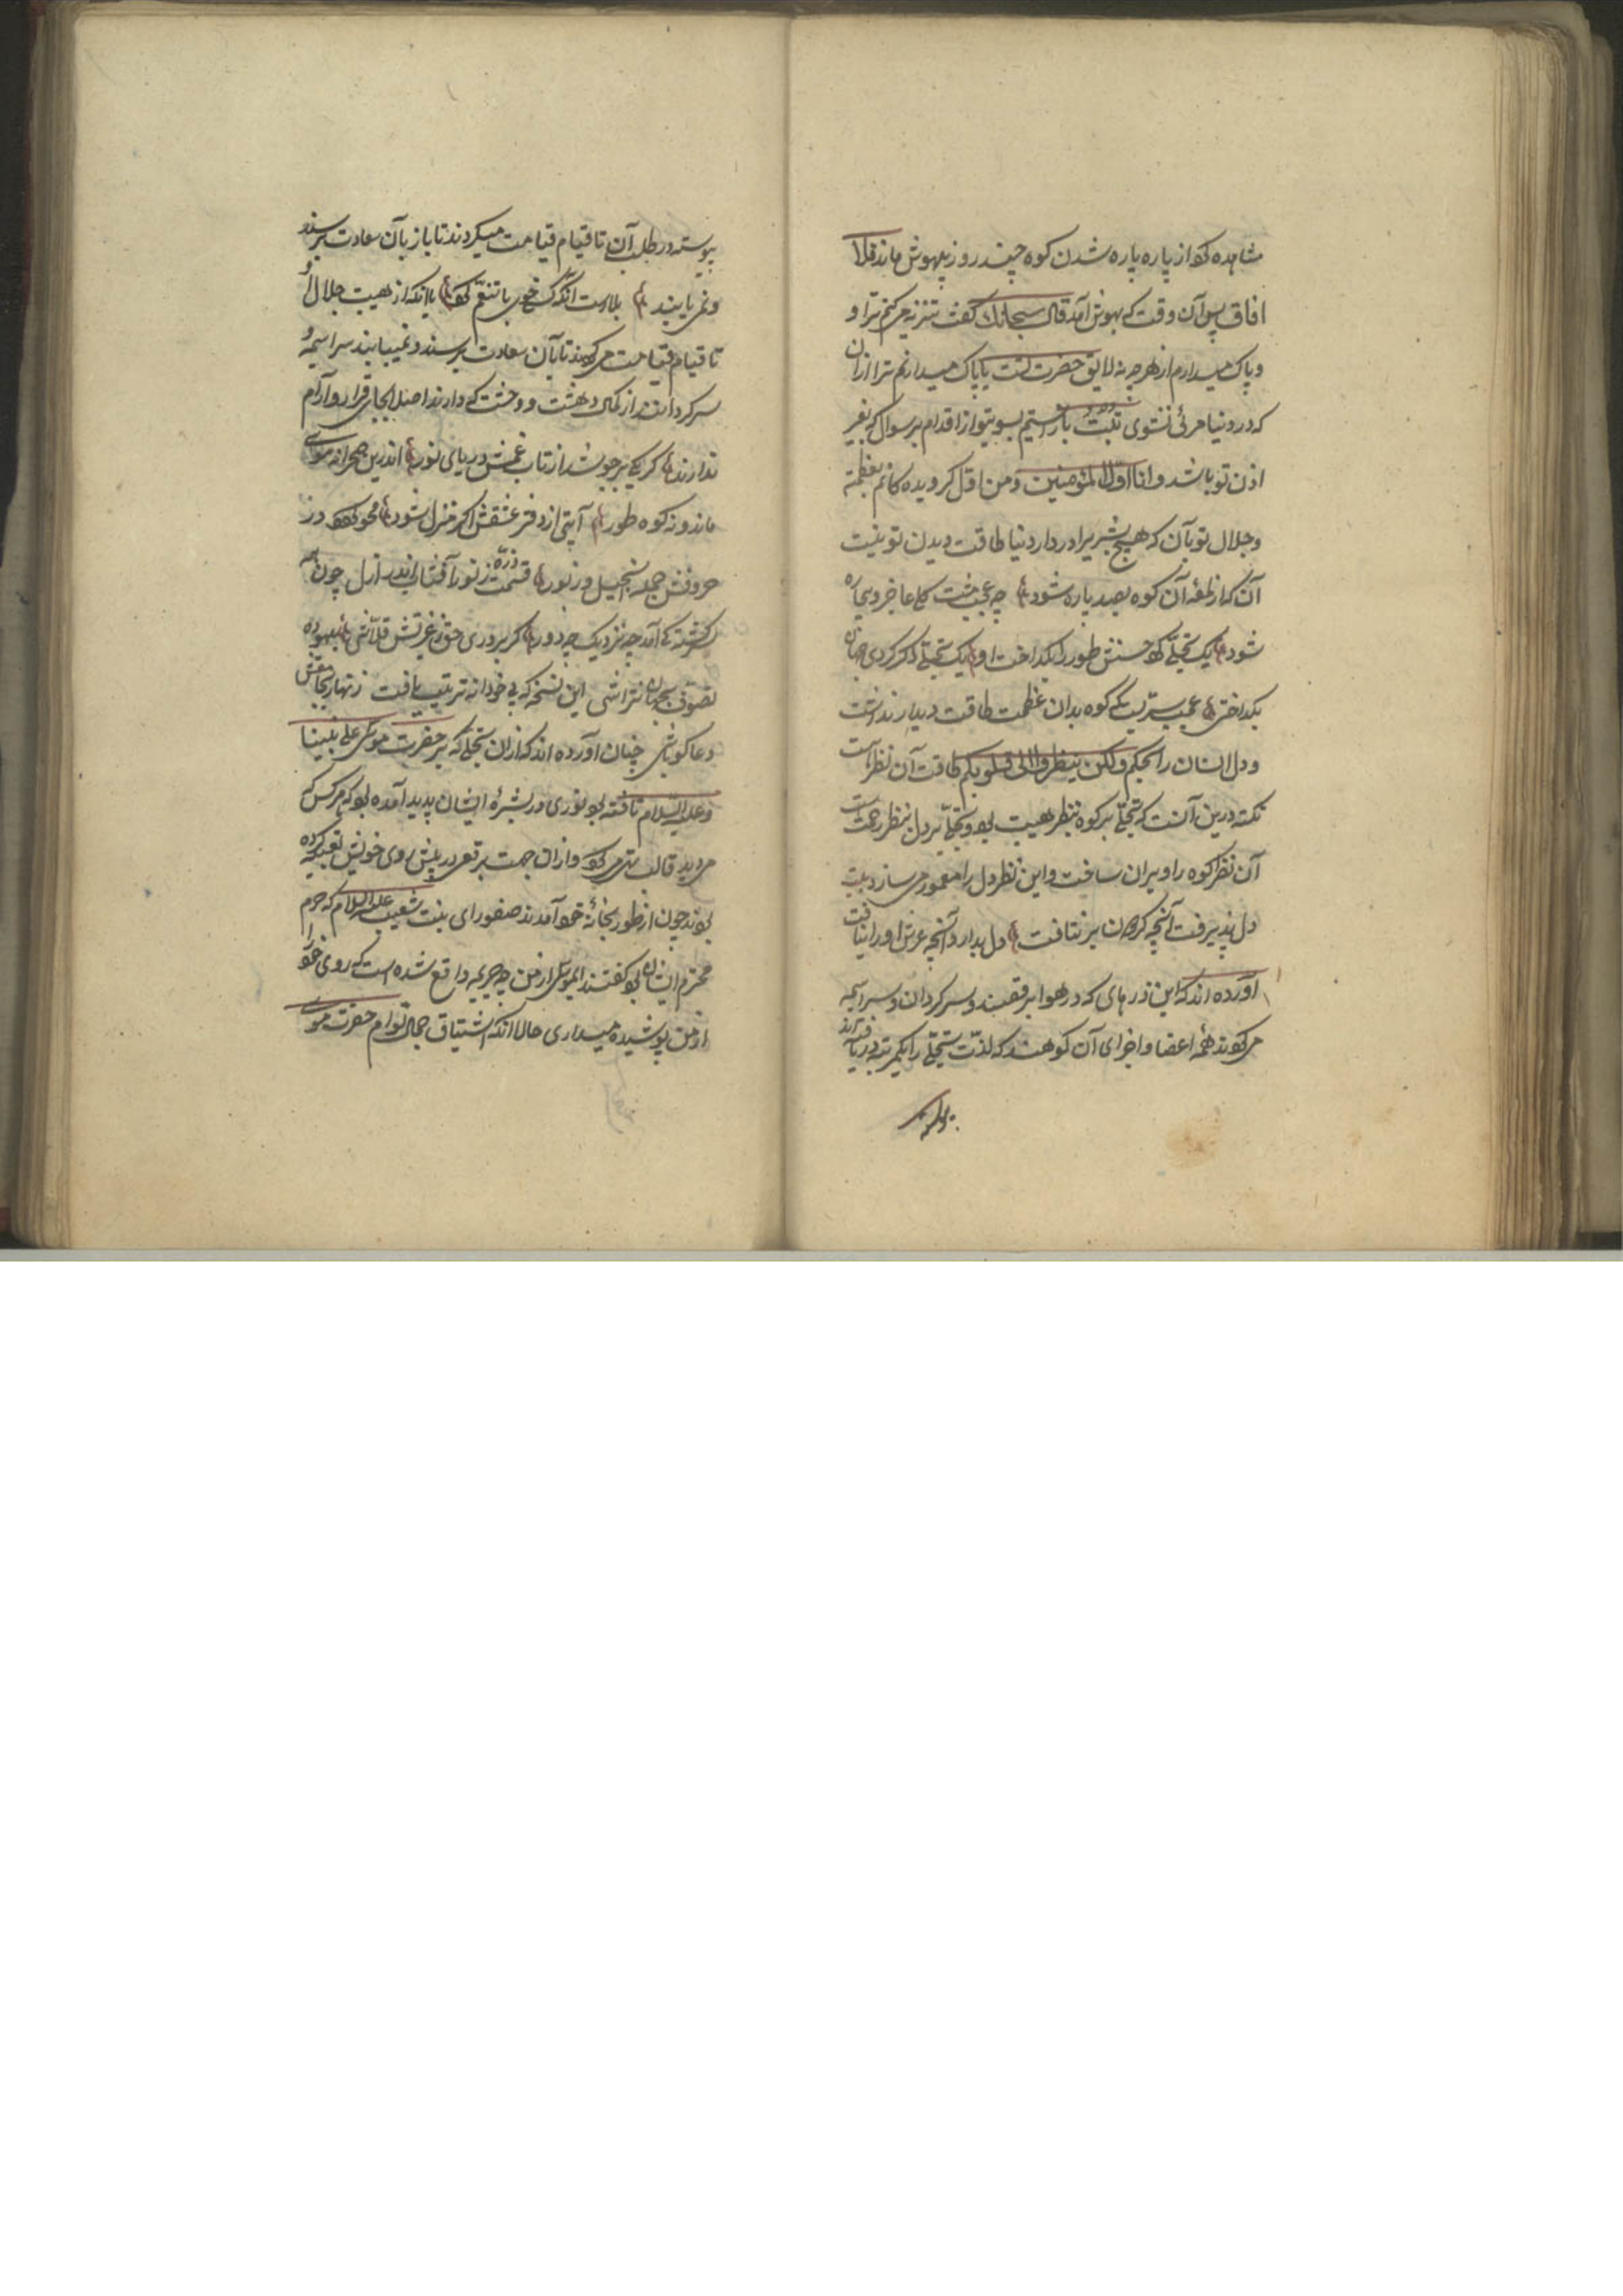 مشاهده کو از پاره پاره شدن کوه چند روز بیهوش ماند فلما
افاق پس آن وقت که بهوش آمد قال سبحانک گفت تنزیه می کنم ترا و
و پاک میدارم از هر چه نه لایق حضرت تست یا پاک میدانم ترا از آن
که در دنیا مرئی نشوی تبت باز کشتم بسوی تو از اقدام بر سوال که بغیر
اذن تو باشد و انا اول المؤمنین و من اول کرویده کانم بعظمة
و جلال تو بآن که هیچ بشریرا در دار دنیا طاقت دیدن تو نیست
آن که از لمعه آن کوه بصد پاره شود چه عجب مشت کلی عاجز و بیچاره
شود یک تجلّی کو حسنش طور را بکداخت او یک تجلّی دکر کردی جهان
بکداختی عجب سریست که کوه بدان عظمت طاقت دیدار نداشت
و دل انسان را بحکم ولکن ینظر الی قلوبکم طاقت آن نظر است
نکته درین آنست که تجلّی بر کوه بنظر هیبت بود و تجلّی بر دل بنظر رحمت
آن نظر کوه را ویران ساخت و این نظر دل را معمور می سازد بیت
دل پذیرفت آنچه کوهان بر نتافت دل بدارد آنچه عرش او را نیافت
آورده اند که این ذرهای که در هوا برقصند و سرکردان و سراسیمه
می کوند همه اعضا و اجزای آن کوهند که لذّت تجلّی را یکمرتبه دریافته اند
پیوسته
پیوسته در طلب آن تا قیام قیامت میکردند تا باز بآن سعادت برسند
و نمی یابند بلاست انکه کسی خوی با تنعّم کو یا انکه از هیبت جلال او
تا قیام قیامت می کوند تا بآن سعادت برسند و نمییابند سراسیمه و
سرکردانند از کمال دهشت و وحشت که دارند اصلا بجای قرار و آرام
ندارند کر یکی بر جوشد از تاب غمش دریای نور اندرین صحرا نه موسی
ماند و نه کوه طور آیتی از دفتر عشقش اکر منزل شود محو کوه در
حروفش جمله انجیل و زبور قسمت ذرّه ز نور آفتابی اندر ازل چون
کشته کی آمد چه نزدیک چه دور کر بروری حق ز غیرتش قلاّشی بیهوده
تصوّف بجهان نتراشی این نسخه که بی خودانه ترتیب یافت زنهار بجا نقش
دعا کو باشی چنان آورده اند که از آن تجلّی که بر حضرت موسی علی نبینا
و علیه السّلام تافته بود نوری در بشرهٔ ایشان پدید آمده بود که هر کس که
می دید قالب تهی می کو و از آن جهت برقعی در پیش روی خویش تعبیه کرده
بودند چون از طور بخانهٔ خود آمدند صفورای بنت شعیب علیه السلام که حرم
محترم ایشان بود کفتند ای موسی از من چه جریمه واقع شده است که روی خود را
از من پوشیده میداری حالا انکه اشتیاق جمال توام حضرت موسی